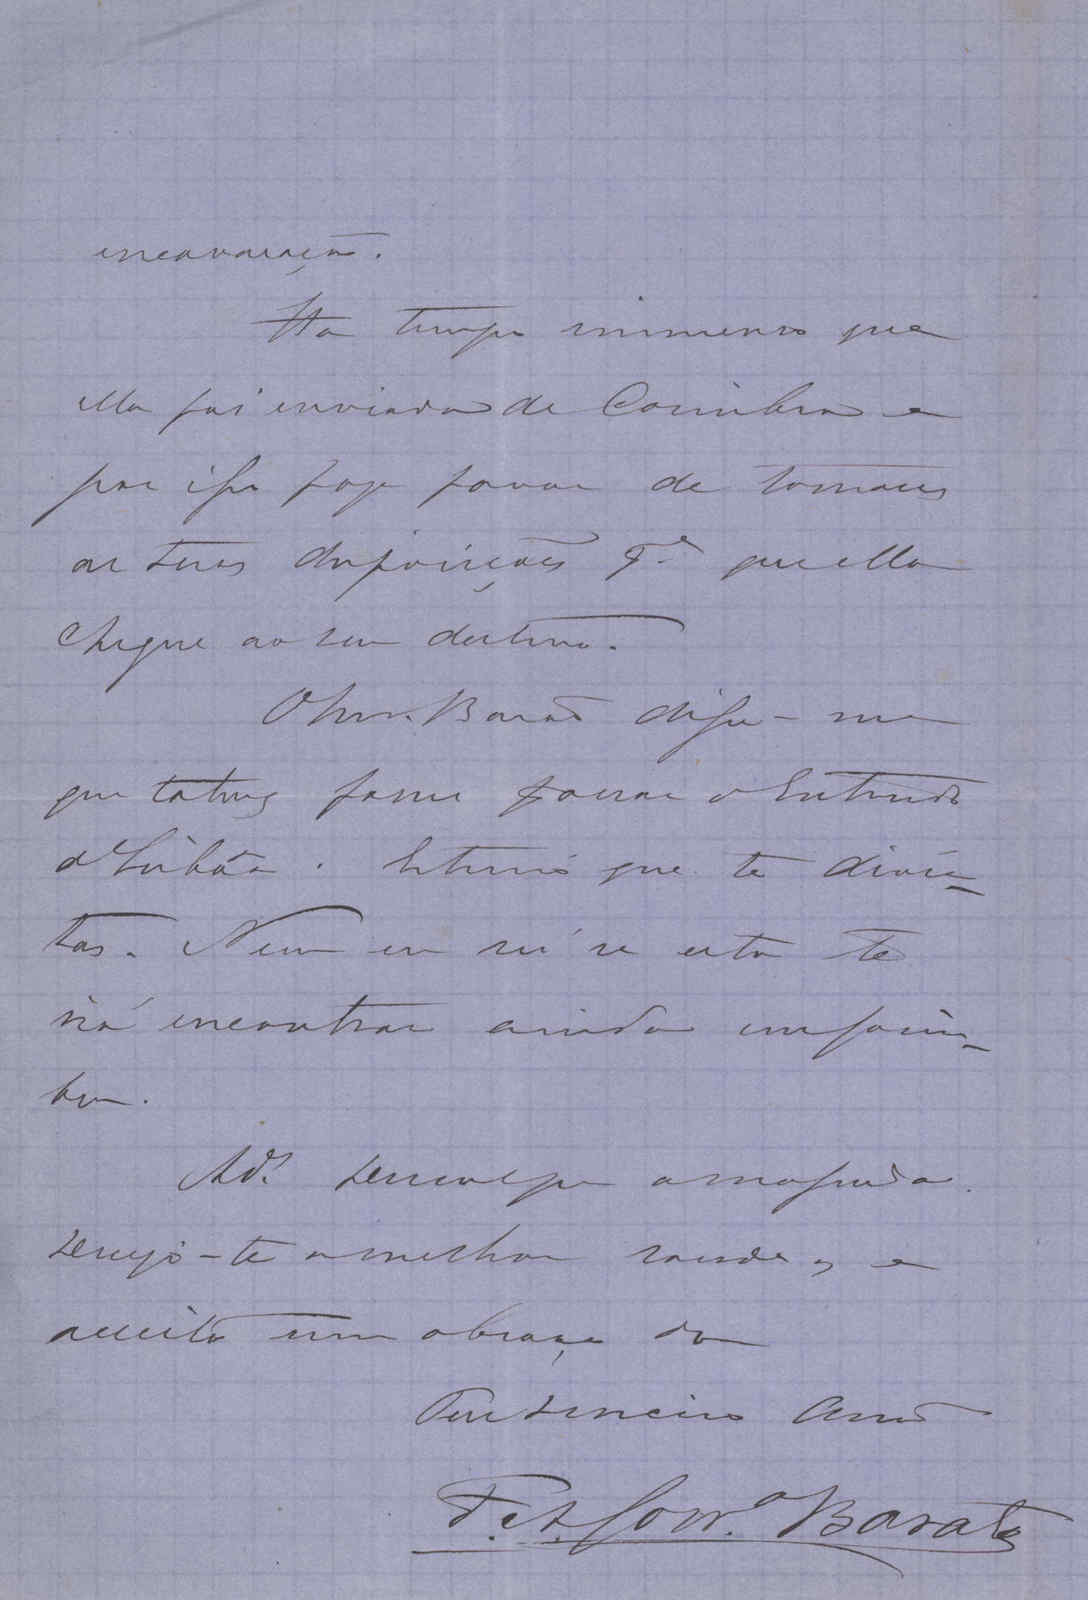 encavacação.
Ha tempo immenso que
ella foi enviada de Coimbra e
por isso faze favor de tomares
as tuas disposições p.ª que ella
chegue ao seu destino.
O Snr. Barata disse-me
que talvez fosses passar o Entrudo
a Lisbôa. Estimo que te divir-
tas. Nem eu sei se esta te
irá encontrar ainda em Coim-
bra.
Ad.s desculpa a massada.
Desejo-te a melhor saude, e
acceita um abraço do
Teu sincero Am.º
F. A. Barata